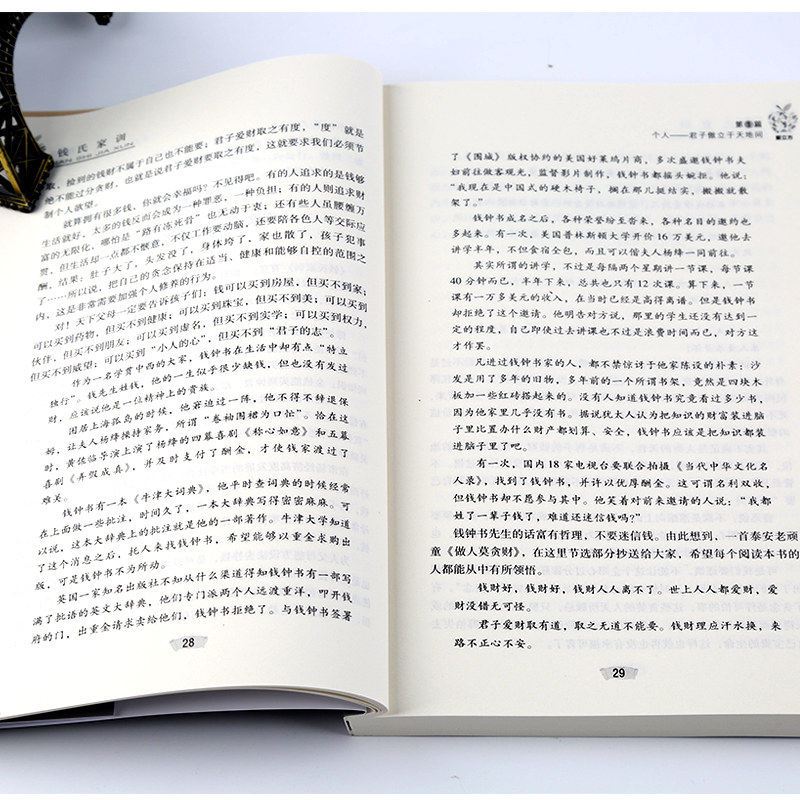 钱氏家训
QIAN SHI JIA XUN
取，捡到的钱财不属于自己也不能要；君子爱财取之有度，“度”就是
他不能过分贪财，也就是说君子爱财要取之有度，这就要求我们必须节
制个人欲望。
就算拥有很多钱，你就会幸福吗？不见得吧。有的人追求的是钱够
生活就好，太多的钱反而会成为一种罪恶，一种负担；有的人则追求财
富的无限化，哪怕是“路有冻死骨”也无动于衷；还有些人虽腰缠万
贯，但生活却一点都不惬意，不仅工作要动脑，还要陪各色人等交际应
酬，结果：肚子大了，头发没了，身体垮了，家也散了，孩子犯事
了……所以说，把自己的贪念保持在适当、健康和能够自控的范围之
内，这是非常需要加强个人修养的行为。
对！天下父母一定要告诉孩子们：钱可以买到房屋，但买不到家；
可以买到药物，但买不到健康；可以买到珠宝，但买不到美；可以买到
伙伴，但买不到朋友；可以买到虚名，但买不到实学；可以买到权力，
但买不到威望；可以买到“小人的心”，但买不到“君子的志”。
作为一名学贯中西的大家，钱钟书在生活中却有点“特立
独行”。钱先生姓钱，他的一生似乎很少缺钱，但也没有发过
财，应该说他是一位精神上的贵族。
困居上海孤岛的时候，他窘迫过一阵，他不得不辞退保
姆，让夫人杨绛操持家务，所谓“卷袖围裙为口忙”。恰在这
时，黄佐临导演上演了杨绛的四幕喜剧《称心如意》和五幕
喜剧《弄假成真》，并及时支付了酬金，才使钱家渡过了
难关。
钱钟书有一本《牛津大词典》，他平时查词典的时候经常
在上面做一些批注，时间久了，一本大辞典写得密密麻麻。可
以说，这本大辞典上的批注就是他的一部著作。牛津大学知道
了这个消息之后，托人来找钱钟书，希望能够以重金求购出
版，可是钱钟书不为所动。
英国一家知名出版社不知从什么渠道得知钱钟书有一部写
满了批语的英文大辞典，他们专门派两个人远渡重洋，叩开钱
府的门，出重金请求卖给他们，钱钟书拒绝了。与钱钟书签署
28
第①篇
个人——君子傲立于天地间
了《围城》版权协约的美国好莱坞片商，多次盛邀钱钟书夫
妇前往做客观光，监督影片制作，钱钟书都摇头婉拒。他说：
“我现在是中国式的硬木椅子，搁在那儿挺结实，搬搬就散
架了。”
钱钟书成名之后，各种荣誉纷至沓来，各种名目的邀约也
多起来。有一次，美国普林斯顿大学开价16万美元，邀他去
讲学半年，不但食宿全包，而且可以偕夫人杨绛一同前往。
其实所谓的讲学，不过是每隔两个星期讲一节课，每节课
40分钟而已，半年下来，总共也只有12次课。算下来，一节
课有一万多美元的收入，在当时已经是高得离谱。但是钱钟书
却拒绝了这个邀请。他明告对方说，那里的学生还没有达到一
定的程度，自己即使过去讲课也不过是浪费时间而已，对方这
才作罢。
凡进过钱钟书家的人，都不禁惊讶于他家陈设的朴素：沙
发是用了多年的旧物，多年前的一个所谓书架，竟然是四块木
板加一些红砖搭起来的。没有人知道钱钟书究竟看过多少书，
因为他家里几乎没有书。据说犹太人认为把知识的财富装进脑
子里比置办什么财产都划算、安全，钱钟书应该是把知识都装
进脑子里了吧。
有一次，国内18家电视台要联合拍摄《当代中华文化名
人录》，找到了钱钟书，并许以优厚酬金。这可谓名利双收，
但钱钟书却不愿参与其中。他笑着对前来邀请的人说：“我都
姓了一辈子钱了，难道还迷信钱吗？”
钱钟书先生的话富有哲理，不要迷信钱。由此想到，一首泰安老顽
童《做人莫贪财》，在这里节选部分抄送给大家，希望每个阅读本书的
人都能从中有所领悟。
钱财好，钱财好，钱财人人离不了。世上人人都爱财，爱
财没错无可怪。
君子爱财取有道，取之无道不能要。钱财理应汗水换，来
路不正心不安。
29